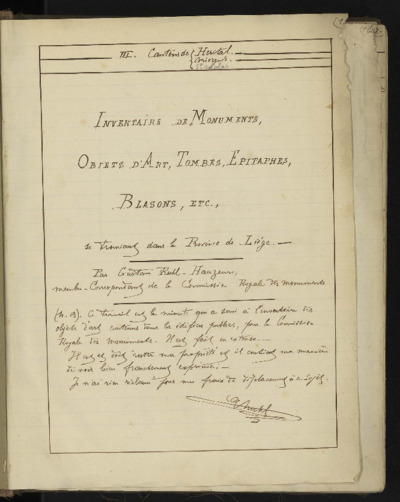 III. Cantons de Herstal
Inventaire de Monuments,
Objets d'Art, Tombes, Epitaphes,
Blasons, etc.,
se trouvant dans la Province de Liége.
Par Gustave Ruhl-Hauzeur,
membre-Correspondant de la Commission Royale des monuments
(N.B). Ce travail est la minute qui a servi à l'inventaire des
objets d'art contenus dans les édifices publics, pour la Commission
Royale des monuments. Il est fait en
Il est et doit rester ma propriété et il contient ma manière
de voir bien franchement exprimée.
Je n'ai rien réclamé pour mes frais de déplacement
Ruhl